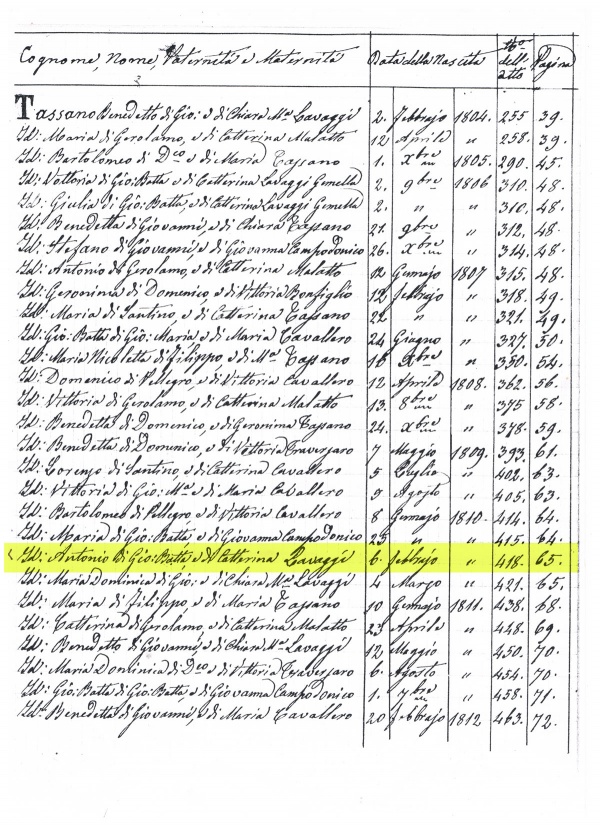 Cognome, Nome, Paternità e Maternità Data della Nascita No dell' atto Pagina
Tassano Benedetto di Gio: e di Chiara Ma Lavaggi 2. Febbrajo 1804. 255 39.
Id: Maria di Gerolamo, e di Catterina Malatto 12 Aprile " 258. 39.
Id: Bartolomeo di Dco e di Maria Tassano 1. Xbre 1805. 290. 45.
Id: Vittoria di Gio: Batta e di Catterina Lavaggi Gemella 2. 9bre 1806 310. 48.
Id: Giulia di Gio: Batta, e di Catterina Lavaggi Gemella 2. " " 310. 48.
Id: Benedetta di Giovanni, e di Chiara Tassano 21. 9bre " 312. 48.
Id: Stefano di Giovanni, e di Giovanna Campodonico 26. Xbre " 314. 48.
Id: Antonio di Gerolamo, e di Catterina Malatto 12 Gennajo 1807 315. 48.
Id: Geronima di Domenico, e di Vittoria Bonfiglio 12. Febbrajo " 318. 49.
Id: Maria di Santino, e di Catterina Tassano 22 " " 321. 49.
Id: Gio: Batta di Gio: Maria, e di Maria Cavallero 24 Giugno " 327. 50.
Id: Maria Nicoletta di Filippo e di Ma Tassano 16 Xbre " 350. 54.
Id: Domenico di Pellegro, e di Vittoria Cavallero 12 Aprile 1808. 362. 56.
Id: Vittoria di Gerolamo, e di Catterina Malatto 13. 8bre " 375 58.
Id: Benedetta di Domenico, e di Geronima Tassano 24. Xbre " 378. 59.
Id: Benedetta di Domenico, e di Vittoria Traversaro 7 Maggio 1809. 393. 61.
Id: Lorenzo di Santino, e di Catterina Cavallero 5 Luglio " 402. 63.
Id: Vittoria di Gio: Ma e di Maria Cavallero 9 Agosto " 405. 63.
Id: Bartolomeo di Pellegro e di Vittoria Cavallero 8 Gennajo 1810. 414. 64.
Id: Maria di Gio: Batta, e di Giovanna Campodonico 25 " " 415. 64.
Id: Antonio di Gio: Batta e di Catterina Lavaggi 6. Febbrajo " 418. 65.
Id: Maria Dominica di Gio: e di Chiara Ma Lavaggi 4 Marzo " 421. 65.
Id: Maria di Filippo, e di Maria Tassano 10 Gennajo 1811. 438. 68.
Id: Catterina di Gerolamo, e di Catterina Malatto 23 Aprile " 448. 69.
Id: Benedetto di Giovanni, e di Chiara Ma Lavaggi 12 Maggio " 450. 70.
Id: Maria Dominica di Dco e di Vittoria Traversaro 6. Agosto " 454. 70.
Id: Gio: Batta di Gio: Batta, e di Giovanna Campodonico 1. 7bre " 458. 71.
Id: Benedetta di Giovanni, e di Maria Cavallero 20 Febbrajo 1812 463. 72.